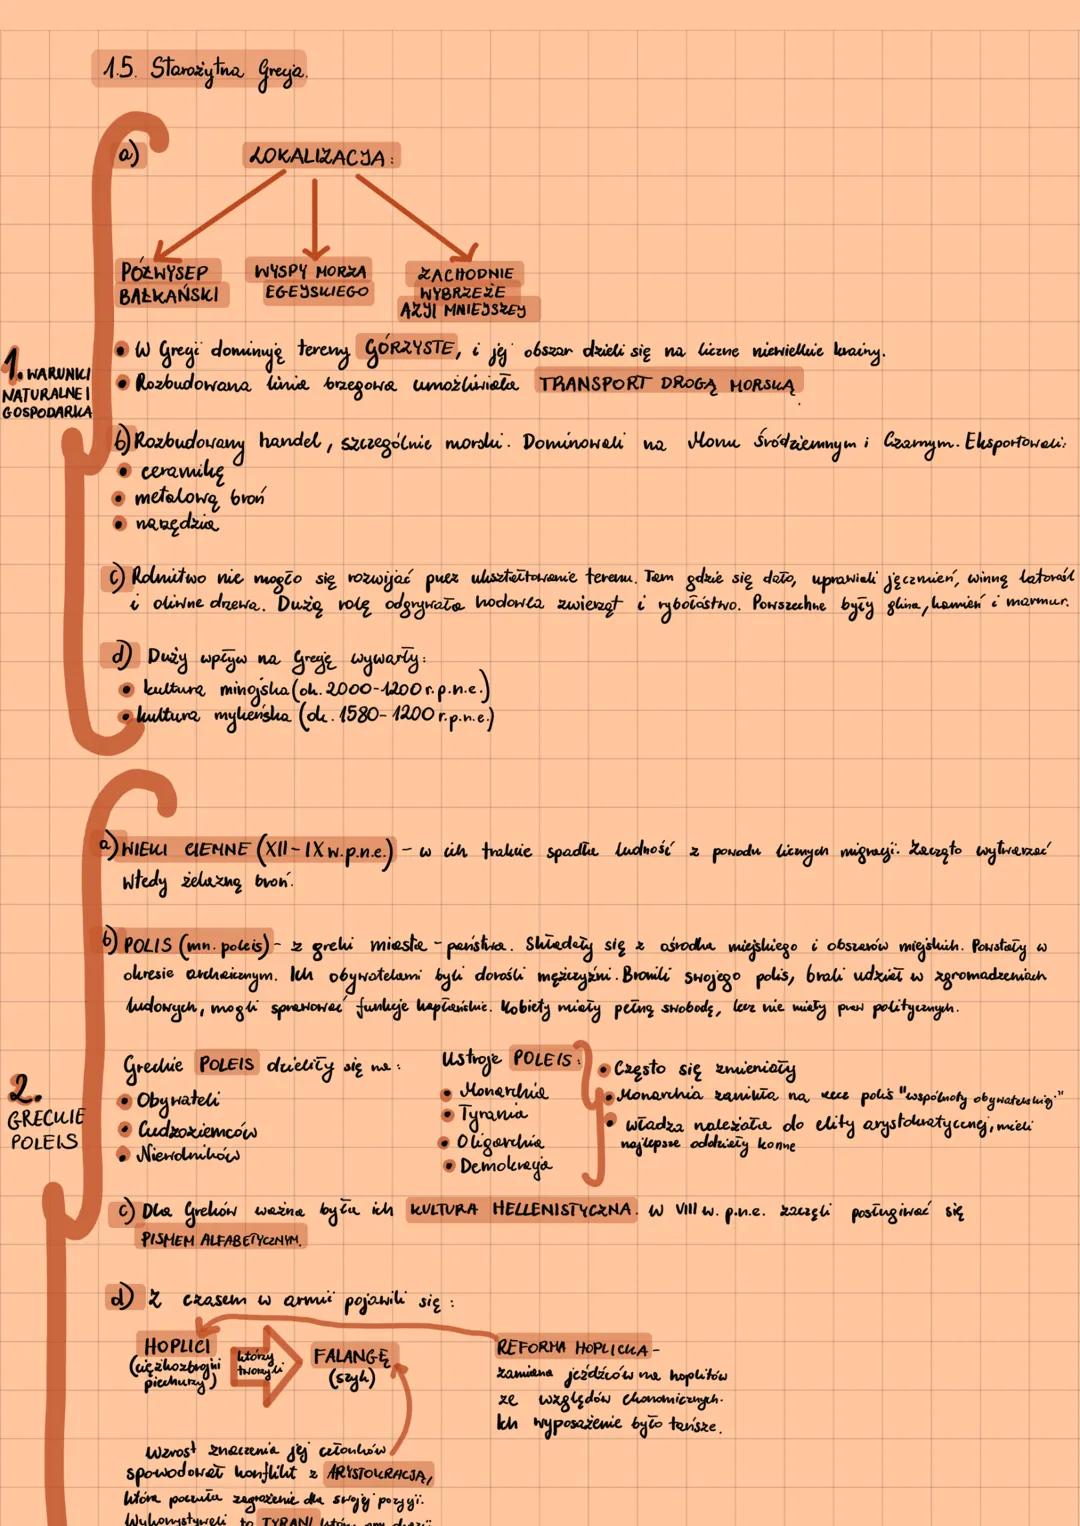 1.5. Starożytna Grecja.
a) LOKALIZACJA:
PÓŁWYSEP
BAŁKAŃSKI
WYSPY MORZA
EGEJSKIEGO
ZACHODNIE
WYBRZEŻE
AZJI MNIEJSZEJ
1. WARUNKI
NATURALNE I
GOSPODARKA
• W Grecji dominują tereny GÓRZYSTE, i jej obszar dzieli się na liczne niewielkie krainy.
• Rozbudowana linia brzegowa umożliwiała TRANSPORT DROGĄ MORSKĄ
b) Rozbudowany handel, szczególnie morski. Dominowali na Morzu Śródziemnym i Czarnym. Eksportowali:
• ceramikę
• metalową broń
• narzędzia
c) Rolnictwo nie mogło się rozwijać przez ukształtowanie terenu. Tam gdzie się dało, uprawiali jęczmień, winną latorośl
i oliwne drzewa. Dużą rolę odgrywała hodowla zwierząt i rybołóstwo. Powszechne były glina, kamień i marmur.
d) Duży wpływ na Grecję wywarły:
• kultura minojska (ok. 2000-1200 r.p.n.e.)
• kultura mykeńska (ok. 1580-1200 r.p.n.e.)
a) WIEKI CIEMNE (XII-IX w.p.n.e.) - w ich trakcie spadła ludność z powodu licznych migracji. Zaczęto wytwarzać
wtedy żelazną broń.
b) POLIS (mn. poleis) - z greki miasta-państwa. Składały się z ośrodka miejskiego i obszarów miejskich. Powstały w
okresie archaicznym. Ich obywatelami byli dorośli mężczyźni. Bronili swojego polis, brali udział w zgromadzeniach
ludowych, mogli sprawować funkcje kapłańskie. Kobiety miały pełną swobodę, lecz nie miały praw politycznych.
2.
GRECKIE
POLEIS
Greckie POLEIS dzieliły się na:
• Obywateli
• Cudzoziemców
• Niewolników
Ustroje POLEIS:
• Monarchia
• Tyrania
• Oligarchia
• Demokracja
• Często się zmieniały
• Monarchia zanikła na rzecz polis "wspólnoty obywatelskiej"
• władza należała do elity arystokratycznej, mieli
najlepsze oddziały konne
c) Dla Greków ważna była ich KULTURA HELLENISTYCZNA. W VIII w. p.n.e. zaczęli posługiwać się
PISMEM ALFABETYCZNYM.
d) Z czasem w armii pojawili się:
HOPLICI
(ciężkozbrojni
piechurzy)
którzy
tworzyli
FALANGĘ
(szyk)
REFORMA HOPLICKA -
zamiana jeźdźców na hoplitów
ze względów ekonomicznych.
Ich wyposażenie było tańsze.
Wzrost znaczenia jej członków
spowodował konflikt z ARYSTOKRACJĄ,
która poczuła zagrożenie dla swojej pozycji.
Wykorzystywali to TYRANI